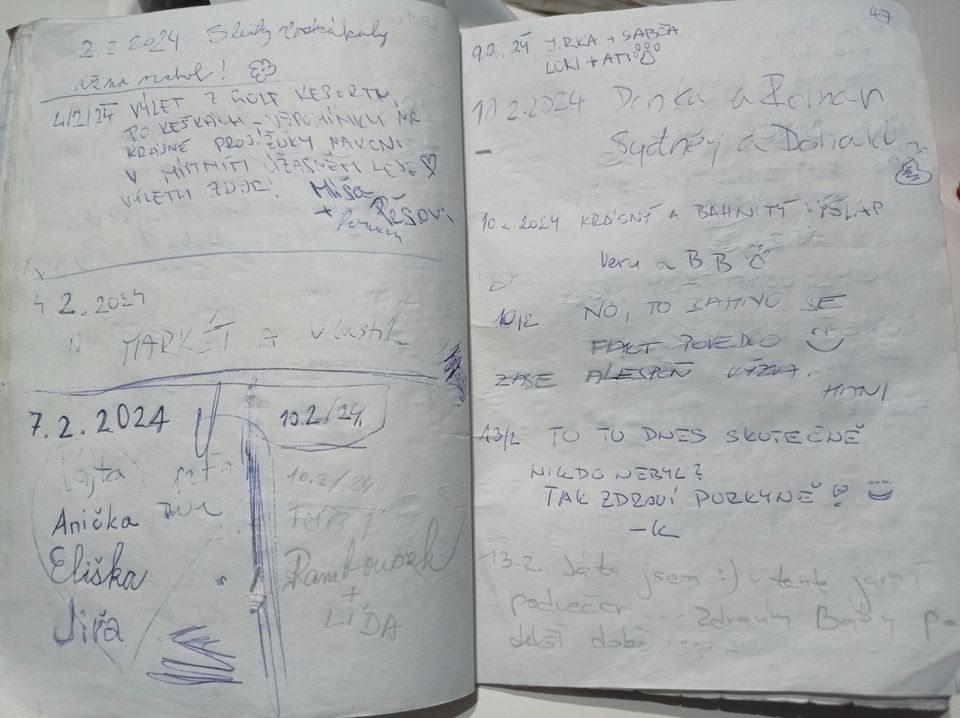 2.2.2024
4/2/24 VÝLET Z GOLF RESORTU
PO KEŠKÁCH – VZPOMÍNKU NA
KRÁSNÉ PROJÍŽĎKY NA KONI
V MÍSTNÍM ÚŽASNÉM LESE
VÝLETU ZDAR!
Míša
+ PEŠOVI
4.2.2024
MARKÉT + Vlastík
7.2.2024
Anička
Eliška
Jiřa
10.2/24,
10.2/24
Rambousek
+
LÍDA
47
9.2.24 JIRKA + SABČA
LOKI + ATI
10.2.2024 Denka a Roman
Sydney a Donald
10.2.2024 KRÁSNÝ A BAHNITÝ VÝŠLAP
Veru a BB
10/2 NO, TO BAHNO SE
FAKT POVEDLO
ZASE ALESPOŇ VÝZVA.
13/2 TO TU DNES SKUTEČNĚ
NIKDO NEBYL?
TAK ZDRAVÍ PURKYNĚ!
–K
13.2. Játa jsem :) v tento jarní
podvečer ... Zdravím Báru po
delší době ...